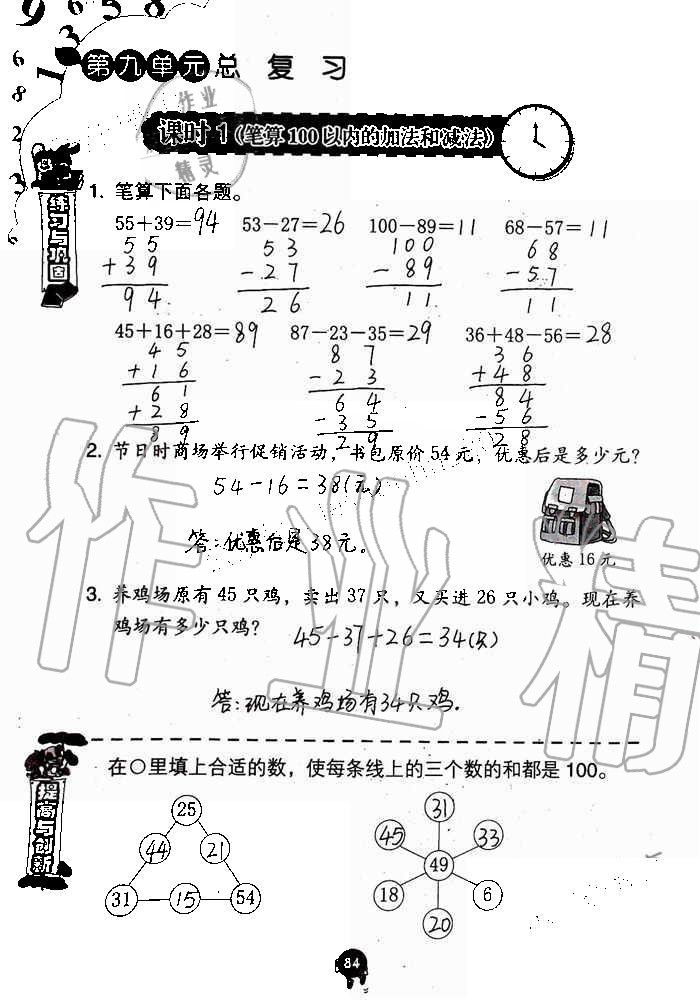 9 6 5 8
6
8
2
3
6
1 3
第九单元 总复习
课时1(笔算100以内的加法和减法)
练习与巩固
1. 笔算下面各题。
55+39=94 53-27=26 100-89=11 68-57=11
55 53 100 68
+39 -27 -89 -57
94 26 11 11
45+16+28=89 87-23-35=29 36+48-56=28
45 87 36
+16 -23 +48
61 64 84
+28 -35 -56
89 29 28
2. 节日时商场举行促销活动,书包原价54元,优惠后是多少元?
54-16=38(元)
答:优惠后是38元。
优惠16元
3. 养鸡场原有45只鸡,卖出37只,又买进26只小鸡。现在养
鸡场有多少只鸡?
45-37+26=34(只)
答:现在养鸡场有34只鸡.
提高与创新
在○里填上合适的数,使每条线上的三个数的和都是100。
25 31
44 21 45 33
49
31 15 54 18 6
20
84
作业精灵
作业精